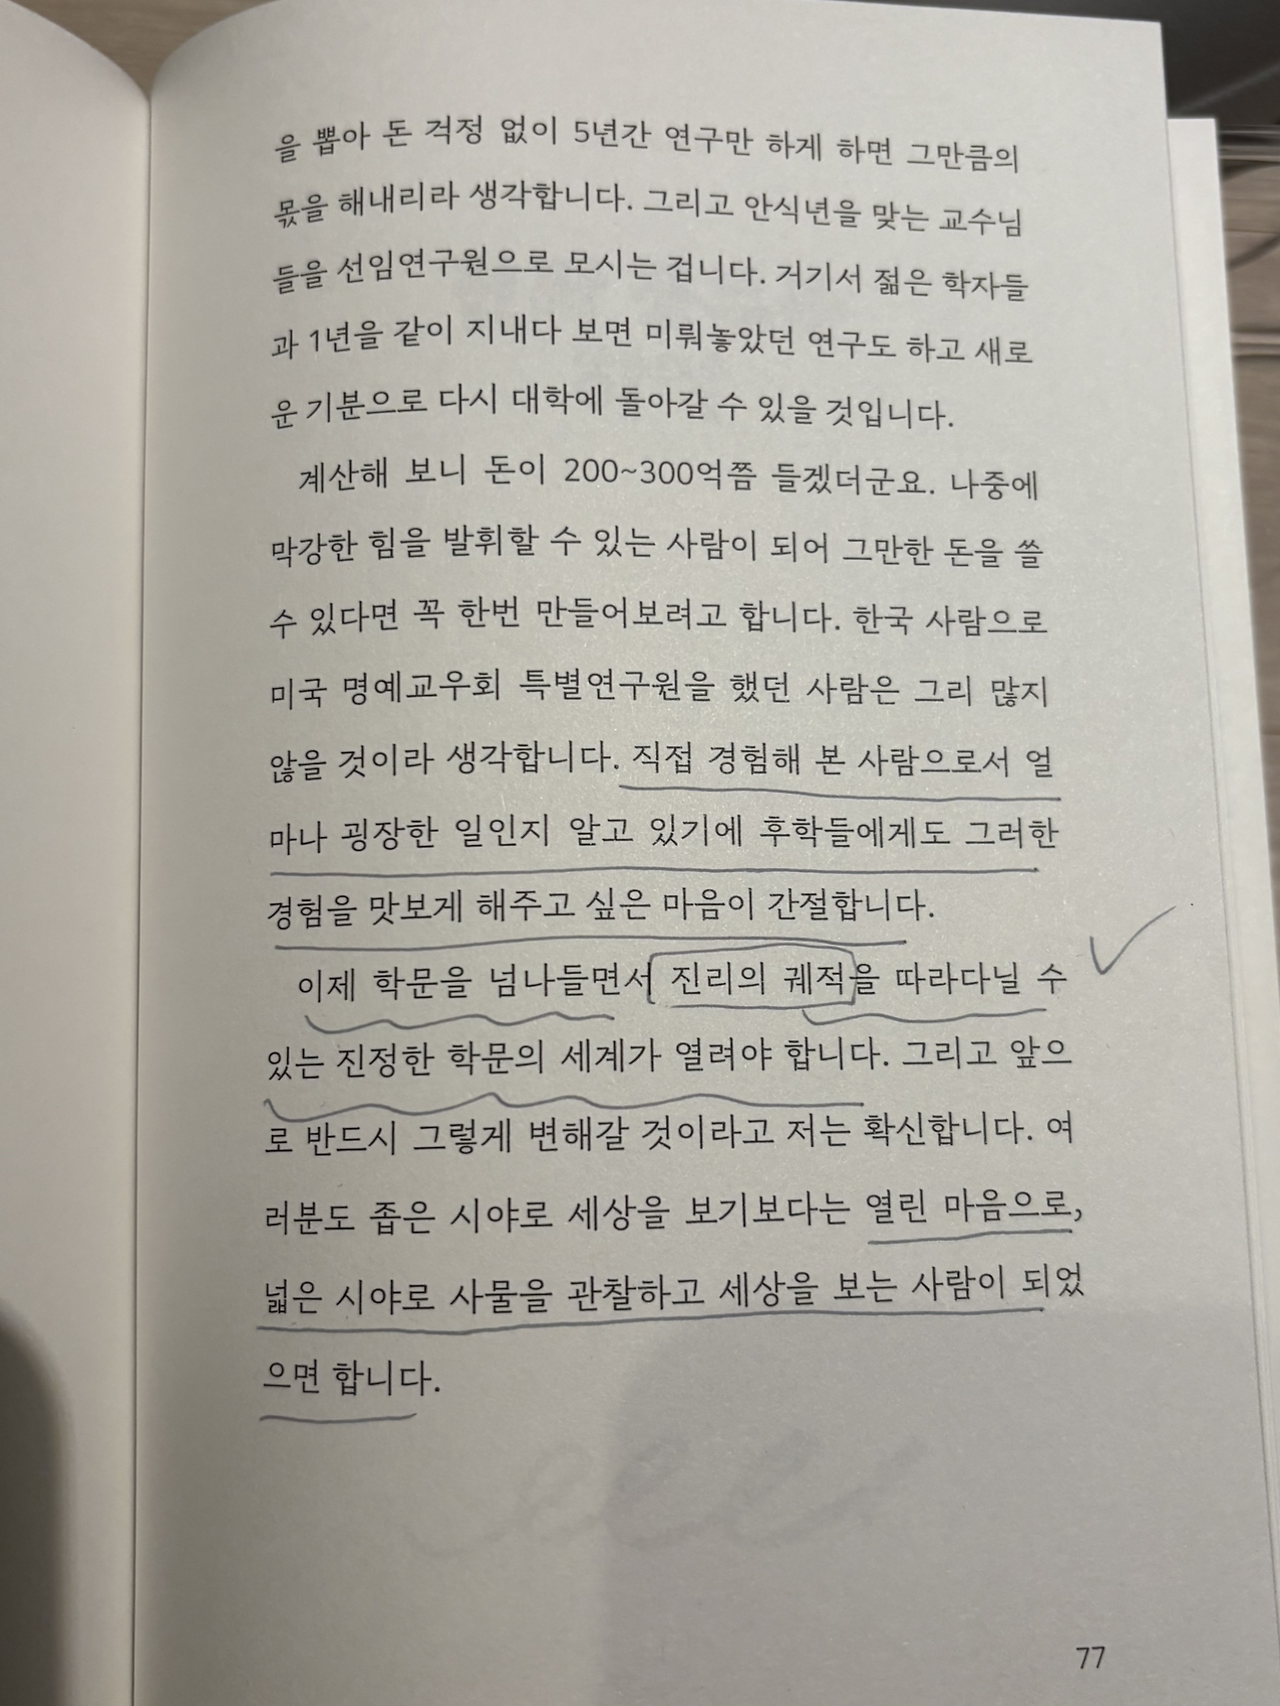 을 뽑아 돈 걱정 없이 5년간 연구만 하게 하면 그만큼의
몫을 해내리라 생각합니다. 그리고 안식년을 맞는 교수님
들을 선임연구원으로 모시는 겁니다. 거기서 젊은 학자들
과 1년을 같이 지내다 보면 미뤄놓았던 연구도 하고 새로
운 기분으로 다시 대학에 돌아갈 수 있을 것입니다.
계산해 보니 돈이 200~300억쯤 들겠더군요. 나중에
막강한 힘을 발휘할 수 있는 사람이 되어 그만한 돈을 쓸
수 있다면 꼭 한번 만들어보려고 합니다. 한국 사람으로
미국 명예교우회 특별연구원을 했던 사람은 그리 많지
않을 것이라 생각합니다. 직접 경험해 본 사람으로서 얼
마나 굉장한 일인지 알고 있기에 후학들에게도 그러한
경험을 맛보게 해주고 싶은 마음이 간절합니다.
이제 학문을 넘나들면서 진리의 궤적을 따라다닐 수
있는 진정한 학문의 세계가 열려야 합니다. 그리고 앞으
로 반드시 그렇게 변해갈 것이라고 저는 확신합니다. 여
러분도 좁은 시야로 세상을 보기보다는 열린 마음으로,
넓은 시야로 사물을 관찰하고 세상을 보는 사람이 되었
으면 합니다.
77